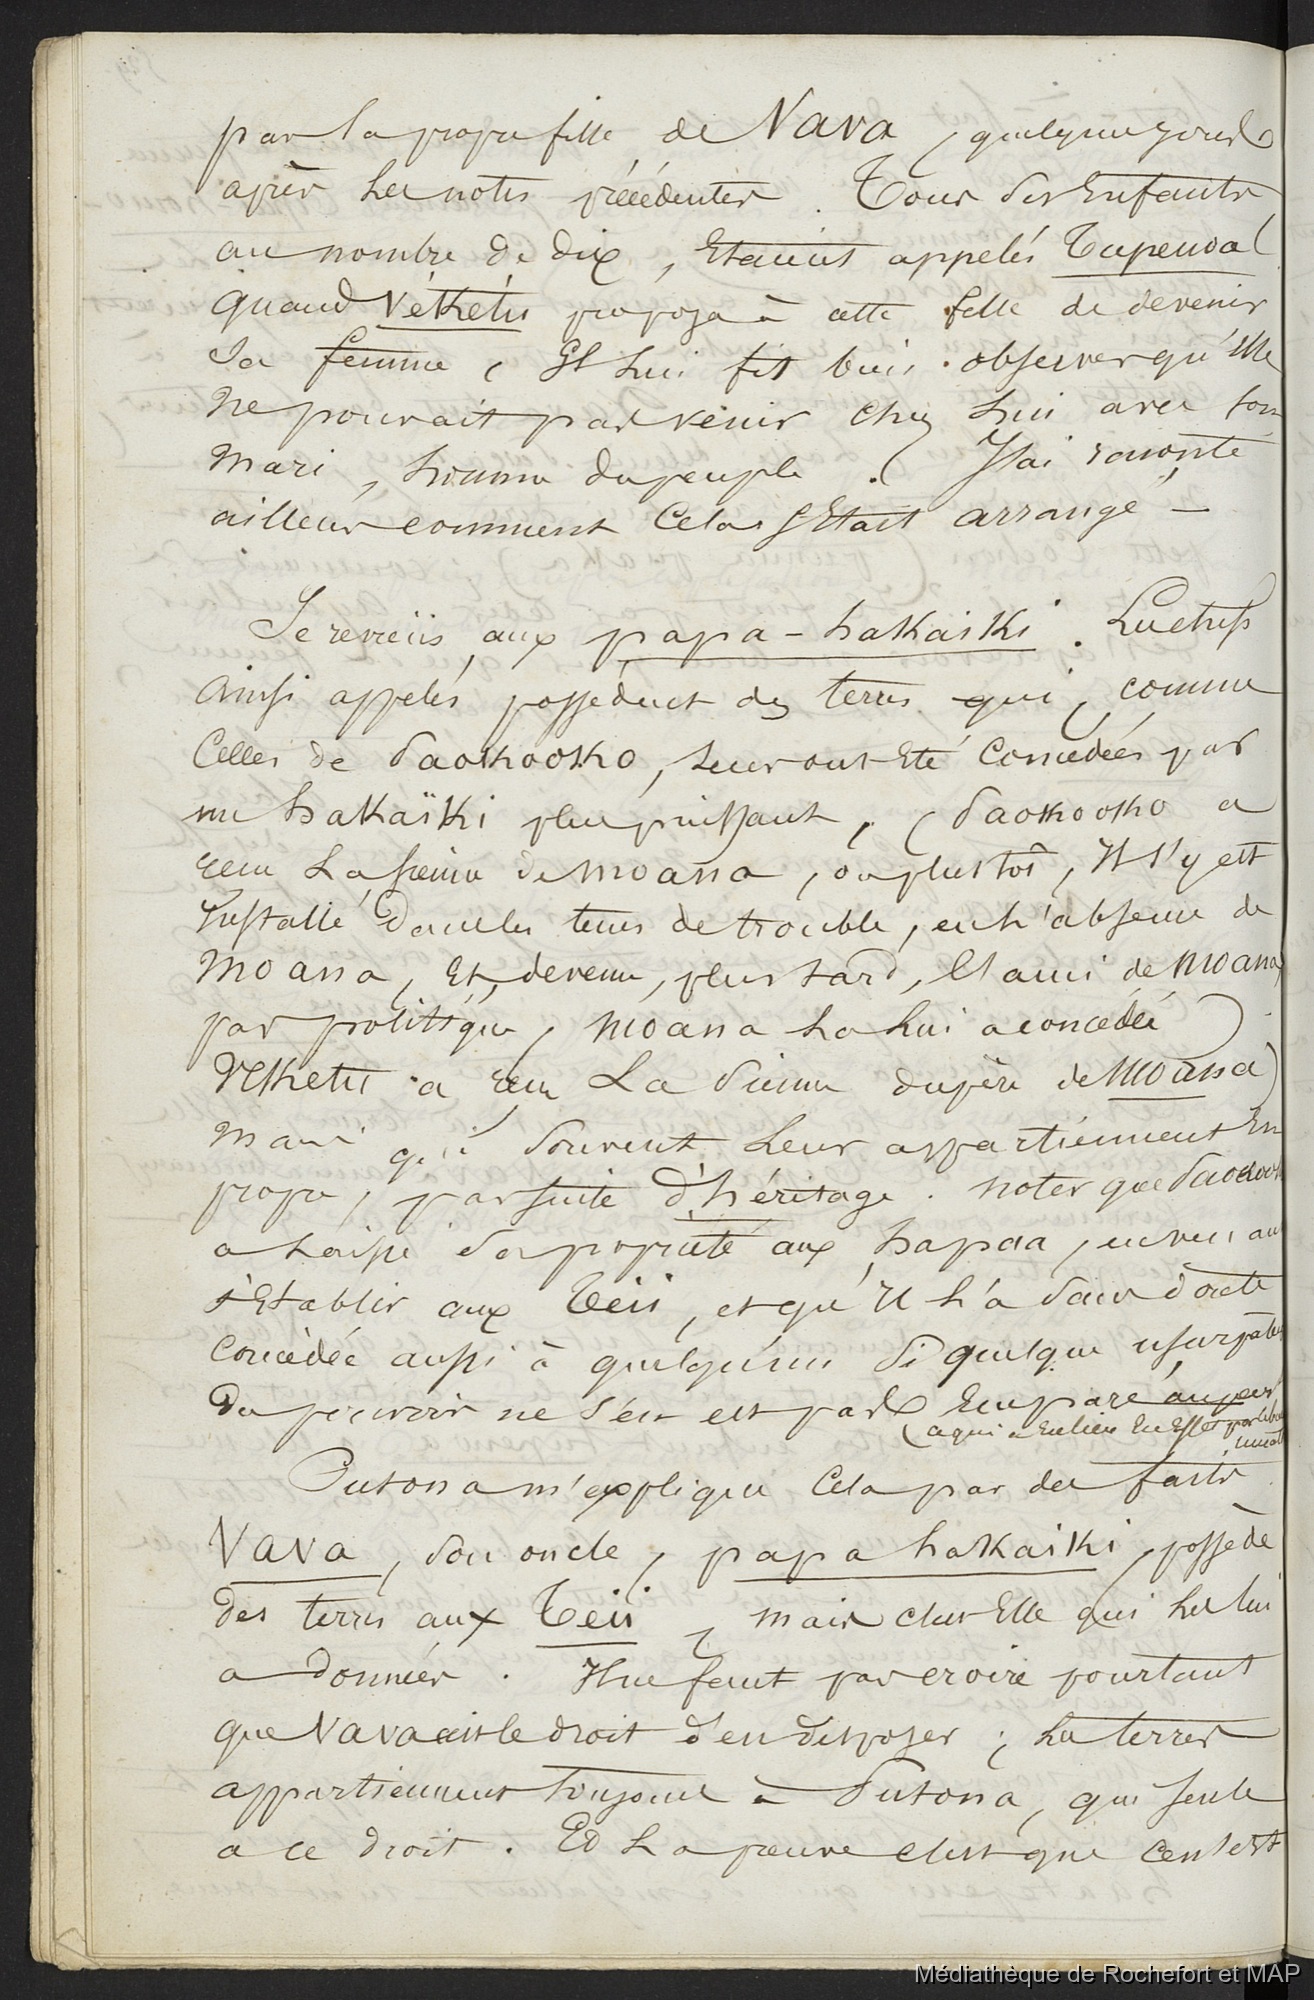 par la propre fille de Vava, quelques jours
après les notes précédentes. Tous ses Enfants
au nombre de dix, Etaient appelés Tupenoa (
quand Vékétu proposa à cette fille de devenir
sa femme, Il lui fit bien observer qu'Elle
ne pouvait pas venir chez lui avec son
mari, homme du peuple. ( J'ai raconté
ailleurs comment Cela s'Etait arrangé —
Je reviens aux papa-hakaiki. Les chefs
ainsi appelés possèdent des terres qui, comme
Celles de Paokooko, leur ont Eté Concédées par
un hakaïki plus puissant, ( Paokooko a
reçu La sienne de Moana, ou plustôt, Il s'y est
Installé dans les tems de trouble, en l'absence de
Moana, Et, devenu, plus tard, l'ami de Moana
par politique, Moana la lui a concédée )
Vékétu a reçu La sienne du père de Moana )
mais qui souvent leur appartiennent En
propre, par suite d'héritage. noter que Paokooko
a laissé sa propriété aux hapaa, en venant
s'Etablir aux Teii, et qu'Il l'a sans doute
Concédée aussi à quelqu'un si quelque usurpateur
du pouvoir ne s'en est pas Emparé
(a qui a Eu lieu En Effet par
Putona m'explique Cela par des faits
Vava, son oncle, papa hakaiki, possède
des terres aux Teii, mais c'est Elle qui les lui
a données. Il ne faut pas croire pourtant
que Vava ait le droit d'en disposer ; les terres
appartiennent toujours à Putona, qui seule
a ce droit. Et La preuve c'est que